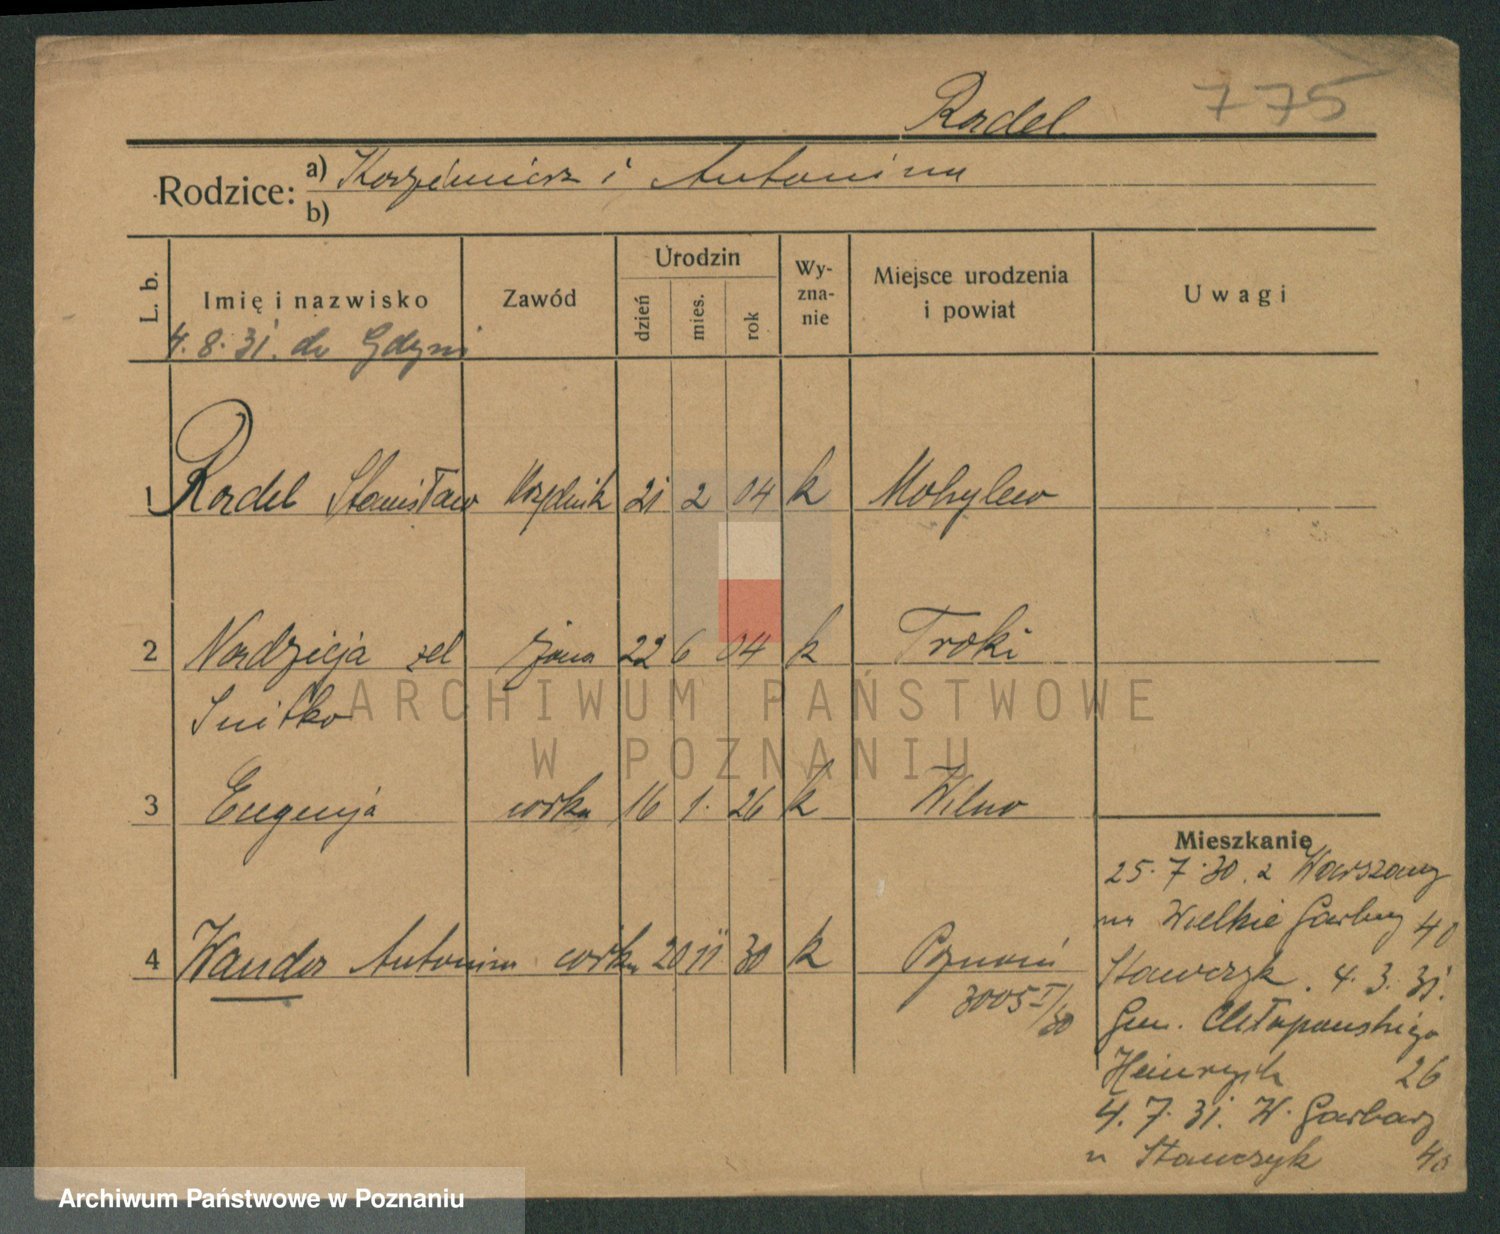 775
Rardel
Rodzice: a) Kazimierz i Antonina
b)
L. b. Imię i nazwisko Zawód Urodzin dzień mies. rok Wy-zna-nie Miejsce urodzenia i powiat Uwagi
4. 8. 31. do Gdyni
1 Rardel Stanisław Urzędnik 21 2 04 k Mohylew
2 Nadzieja zel żona 22 6 04 k Troki
Snitko
3 Eugenja córka 16 1. 26 k Wilno
4 Wanda Antonina córka 20 11 30 k Poznań
3005 I/30
Mieszkanie
25. 7. 30. z Warszawy
na Wielkie Garbary 40
Stawczyk. 4. 3. 31.
Gen. Chłapowskiego
Heinrych 26
4. 7. 31. W. Garbary
u Stawczyk 40
ARCHIWUM PAŃSTWOWE
W POZNANIU
Archiwum Państwowe w Poznaniu